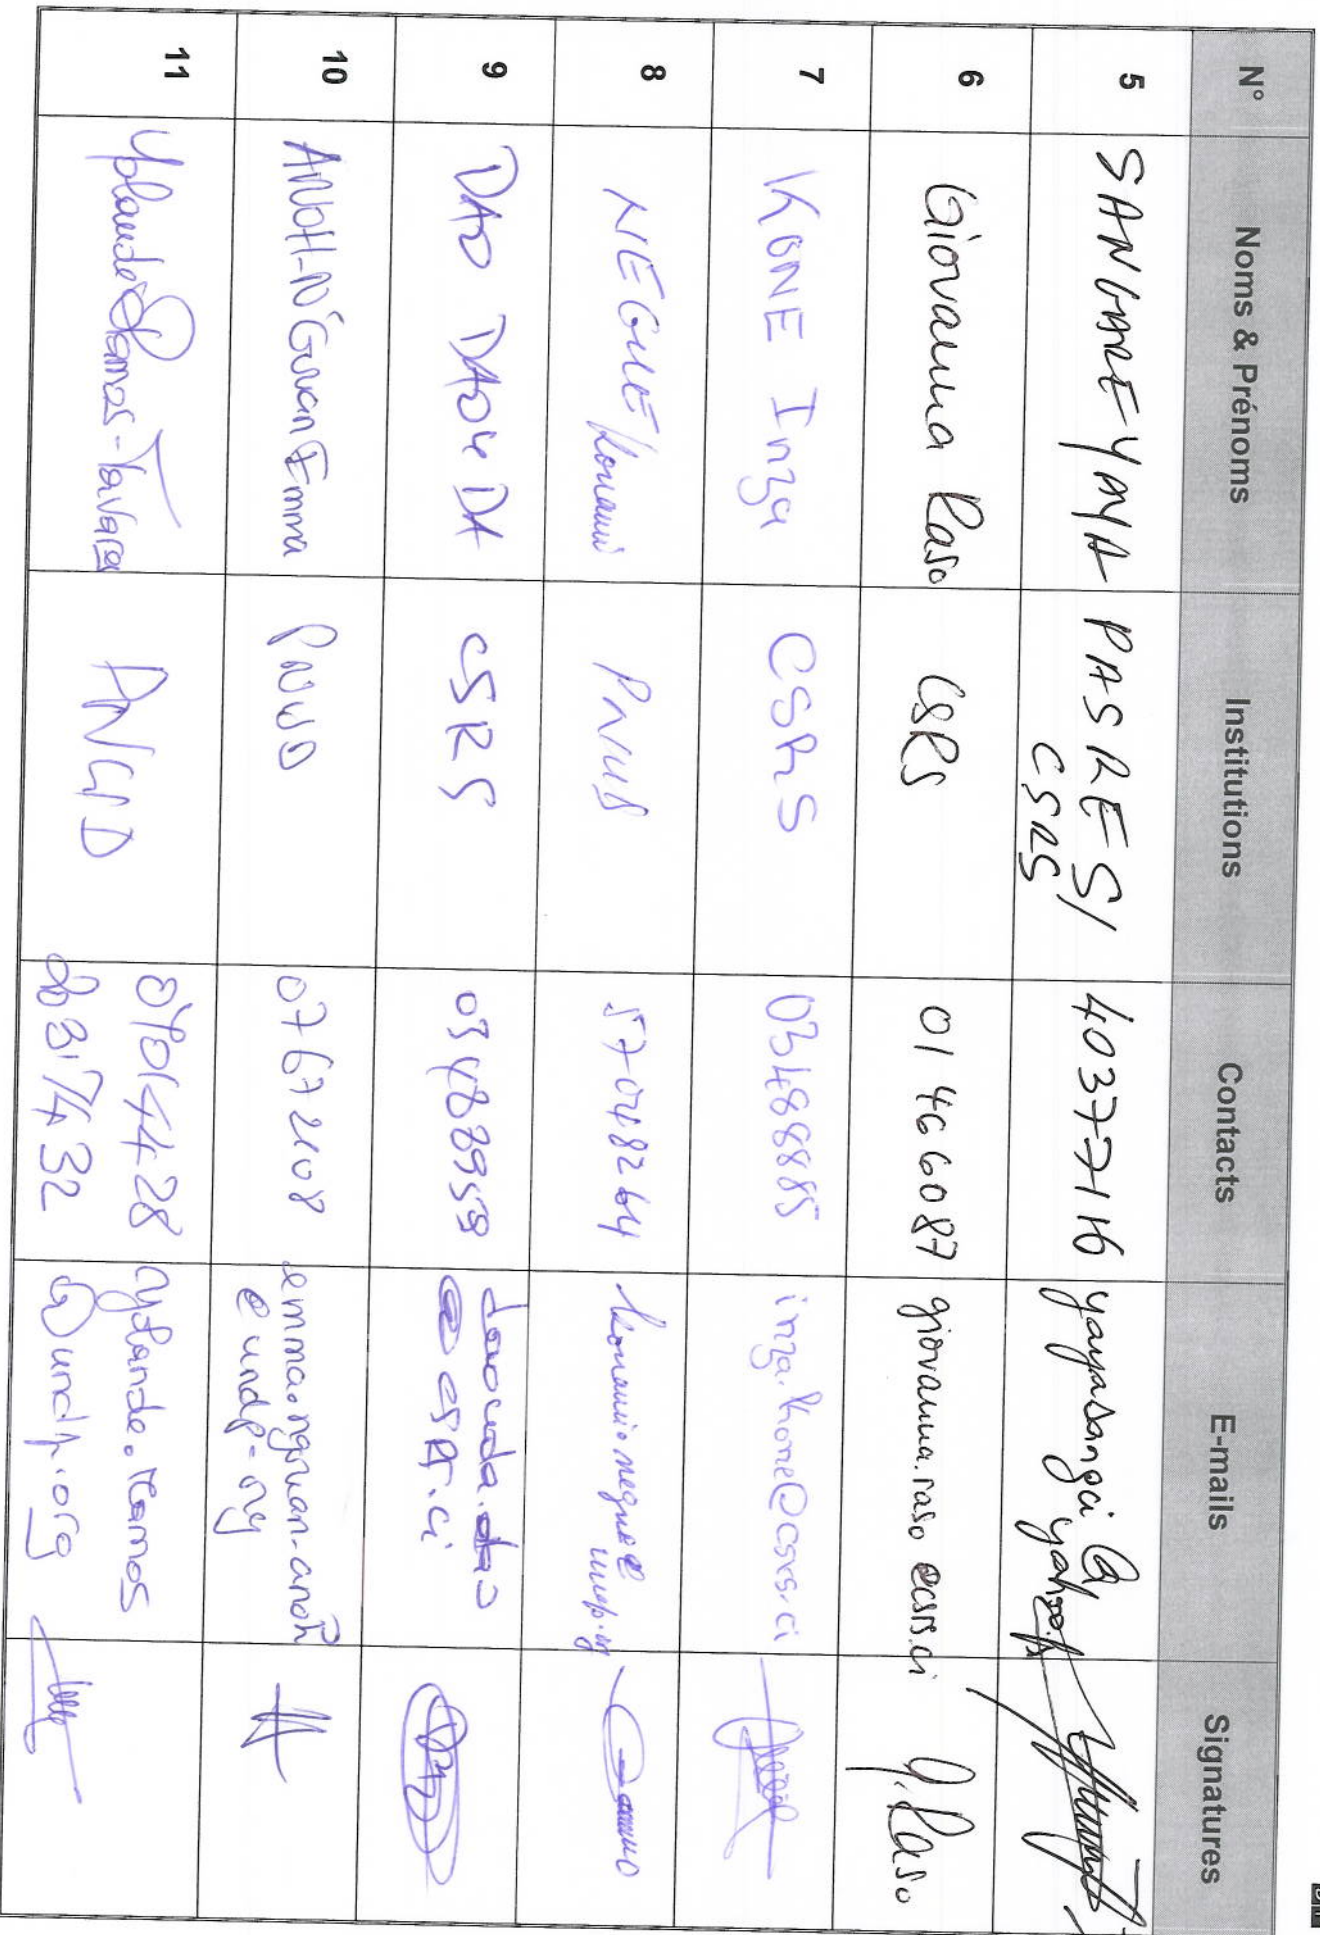 N° Noms & Prénoms Institutions Contacts E-mails Signatures
5 SANGARE YAYA PASRES/ 40377116 yayasangci @
CSRS
6 Giovanna Raso CSRS 01 46 60 87 giovanna.raso @csrs.ci G. Raso
7 KONE Inza CSRS 03488885 inza.kone@csrs.ci
8 NEGUE Kouamé PNUD 57048264
9 DAO DAOUDA CSRS 03488959 daouda.dao
@csrs.ci
10 ANOH-N'Guuan Emma PNUD 07672108 emma.ngouan-anoh
@undp-org
11 Yolande Ramos-Tavares PNUD 07014428 yolande.ramos
06317432 @undp.org